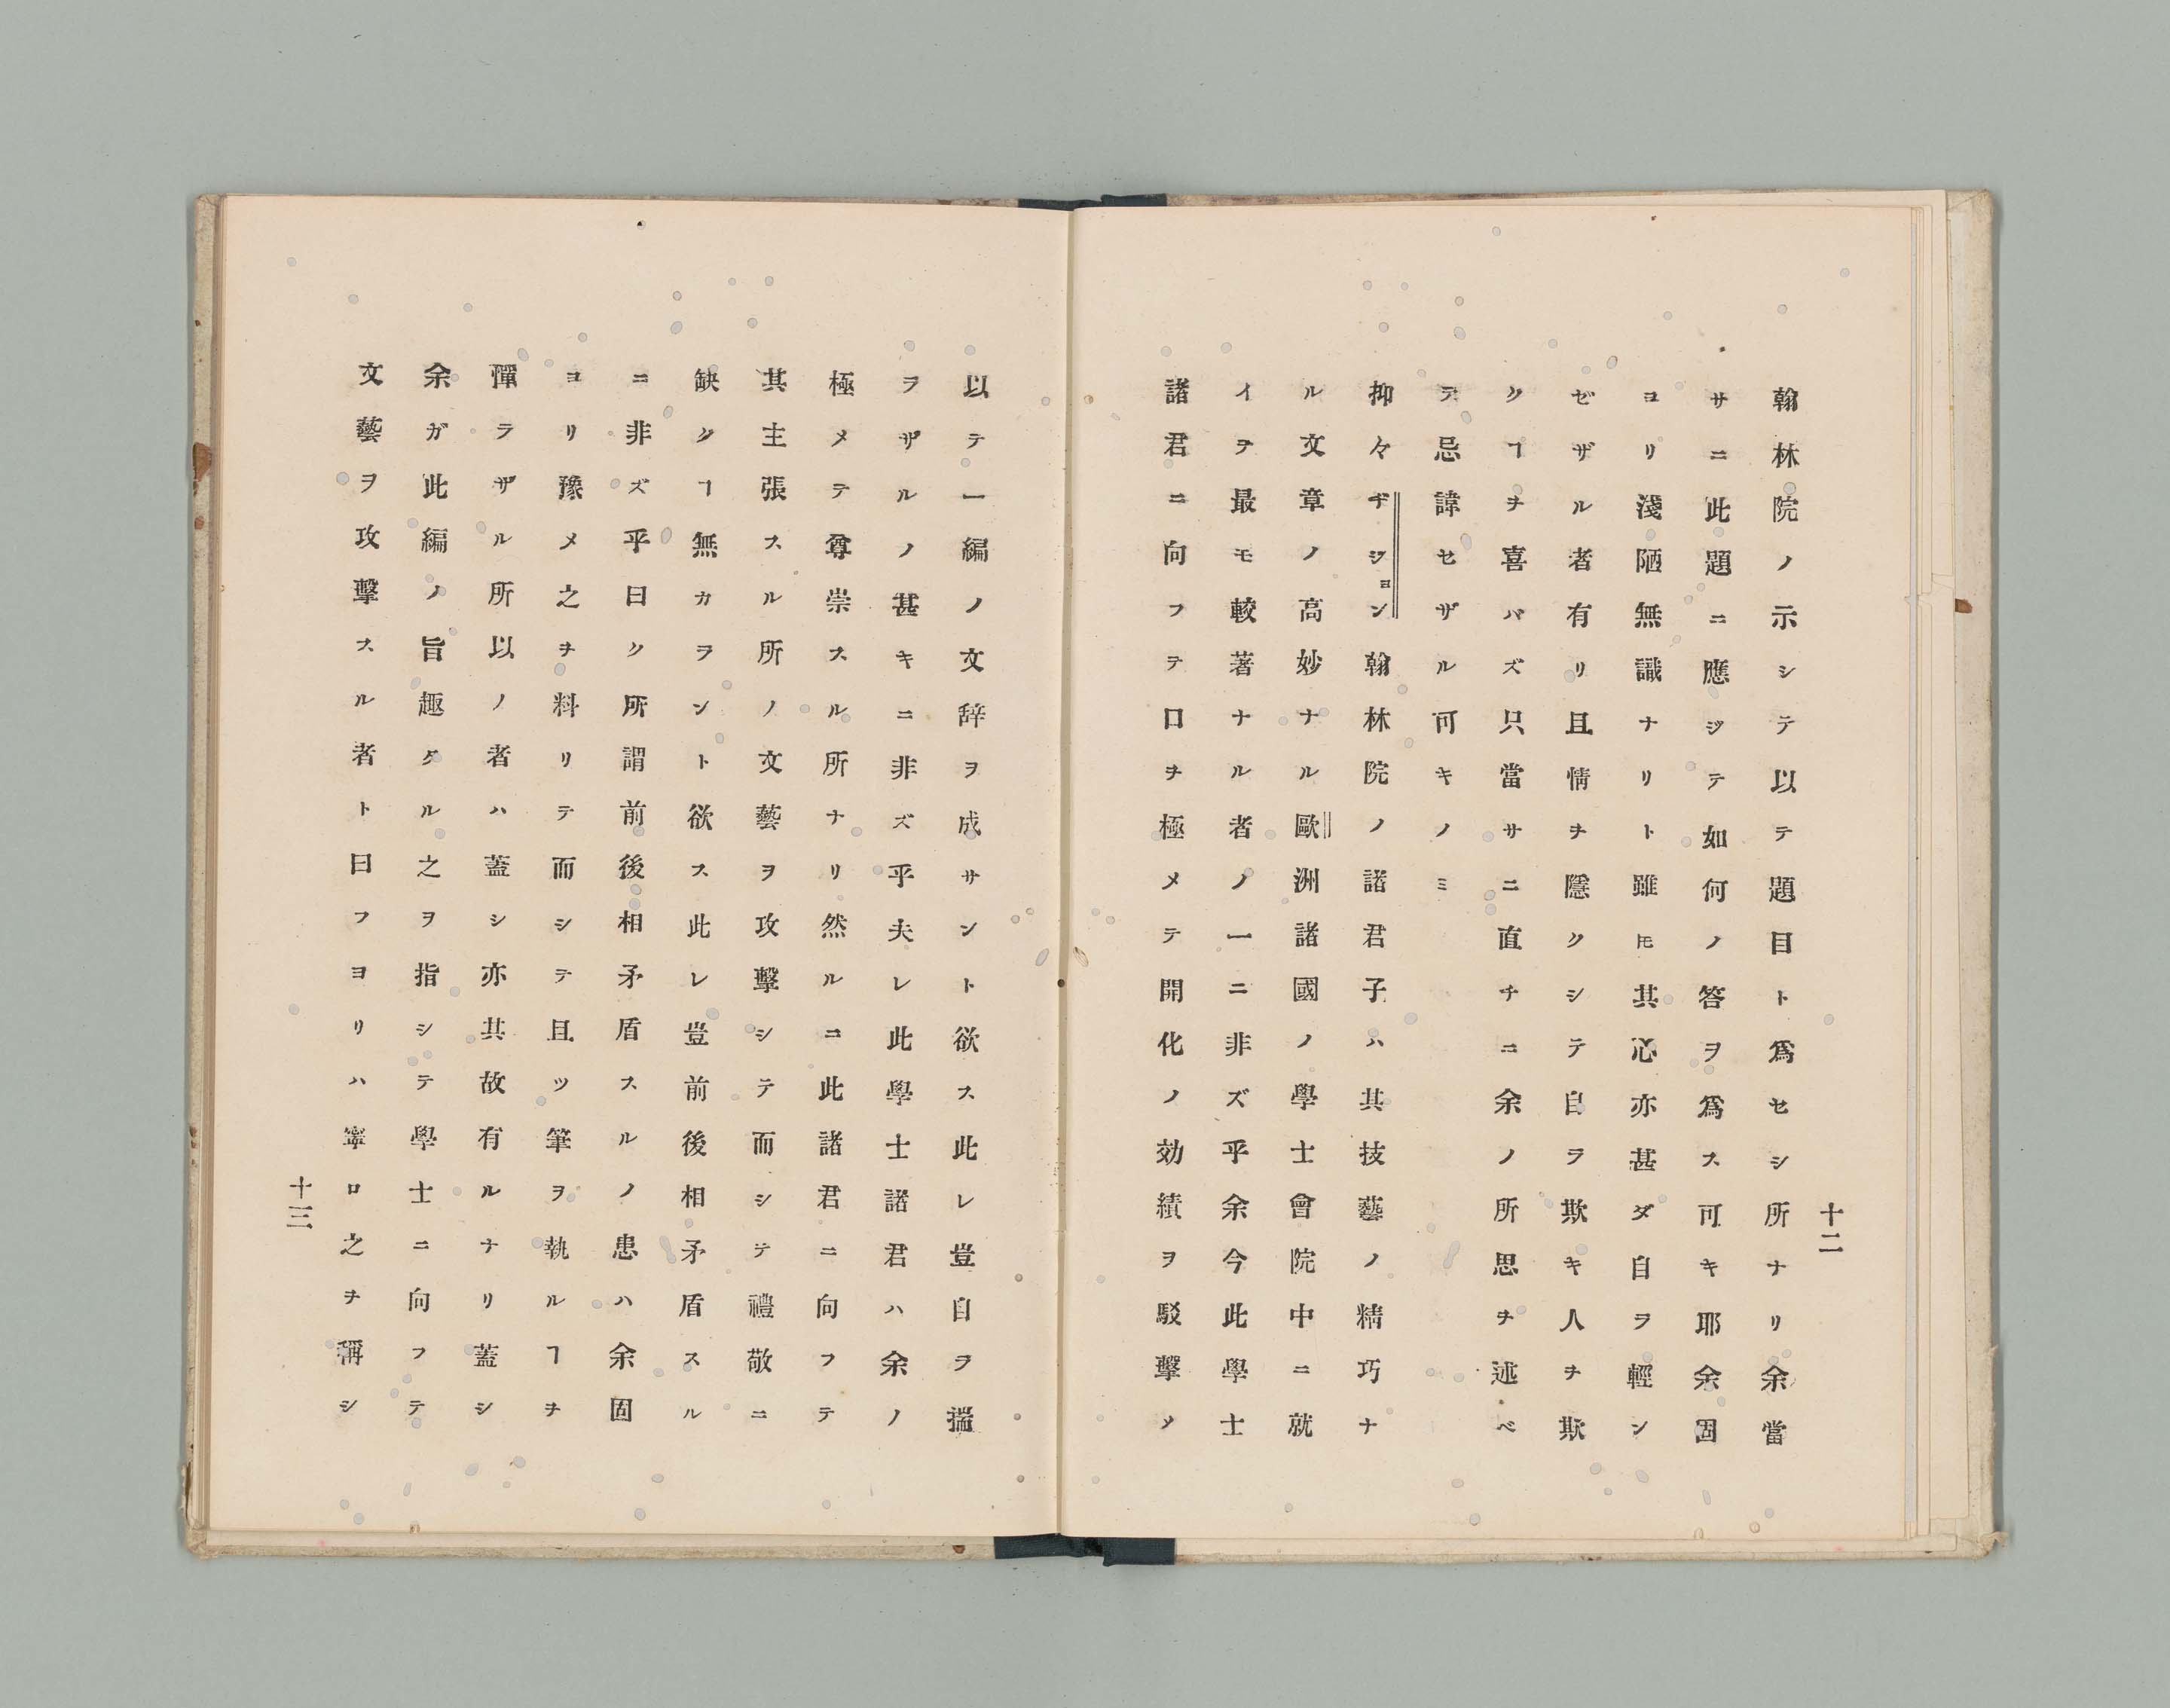 十二
翰林院ノ示シテ以テ題目ト爲セシ所ナリ余當
サニ此題ニ應ジテ如何ノ答ヲ爲ス可キ耶余固
ヨリ淺陋無識ナリト雖𪜈其心亦甚ダ自ヲ輕ン
ゼザル者有リ且情ヲ隱クシテ自ラ欺キ人ヲ欺
クヿヲ喜バズ只當サニ直チニ余ノ所思ヲ述ベ
テ忌諱セザル可キノミ
抑々ヂジヨン翰林院ノ諸君子ハ其技藝ノ精巧ナ
ル文章ノ高妙ナル歐洲諸國ノ學士會院中ニ就
イヲ最モ較著ナル者ノ一ニ非ズ乎余今此學士
諸君ニ向フテ口ヲ極メテ開化ノ効績ヲ駁擊メ
以テ一編ノ文辞ヲ成サント欲ス此レ豈自ヲ揣
ヲザルノ甚キニ非ズ乎夫レ此學士諸君ハ余ノ
極メテ尊崇スル所ナリ然ルニ此諸君ニ向フテ
其主張スル所ノ文藝ヲ攻擊シテ而シテ禮敬ニ
缺クヿ無カヲント欲ス此レ豈前後相矛盾スル
ニ非ズ乎曰ク所謂前後相矛盾スルノ患ハ余固
ヨリ豫メ之ヲ料リテ而シテ且ツ筆ヲ執ルヿヲ
憚ラザル所以ノ者ハ蓋シ亦其故有ルナリ蓋シ
余ガ此編ノ旨趣タル之ヲ指シテ學士ニ向フテ
文藝ヲ攻擊スル者ト曰フヨリハ寧ロ之ヲ稱シ
十三